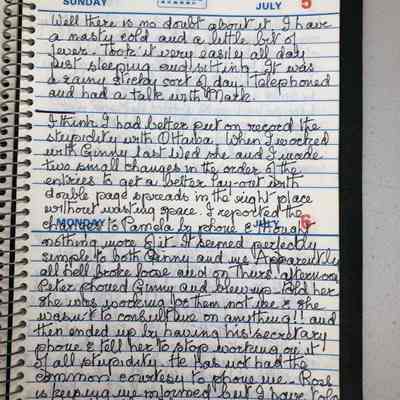 SUNDAY JULY 5
Well there is no doubt about it I have
a nasty cold and a little bit of
fever. Took it very easily all day
just sleeping and sitting. It was
a rainy sticky sort of day. Telephoned
and had a talk with Mark.
I think I had better put on record the
stupidity with Ottawa. When I worked
with Ginny last Wed she and I made
two small changes in the order of the
entries to get a better lay-out with
double page spreads in the right place
without wasting space. I reported the
MONDAY JULY 6
changes to Pamela by phone & thought
nothing more of it. It seemed perfectly
simple to both Ginny and me. Apparently
all hell broke loose and on Thurs. afternoon
Peter phoned Ginny and blew up. Told her
she was working for them not me & she
wasn't to consult me on anything!! and
then ended up by having his secretary
phone & tell her to stop working on it
of all stupidity. He has not had the
common courtesy to phone me. Ross
is keeping me informed but I have told